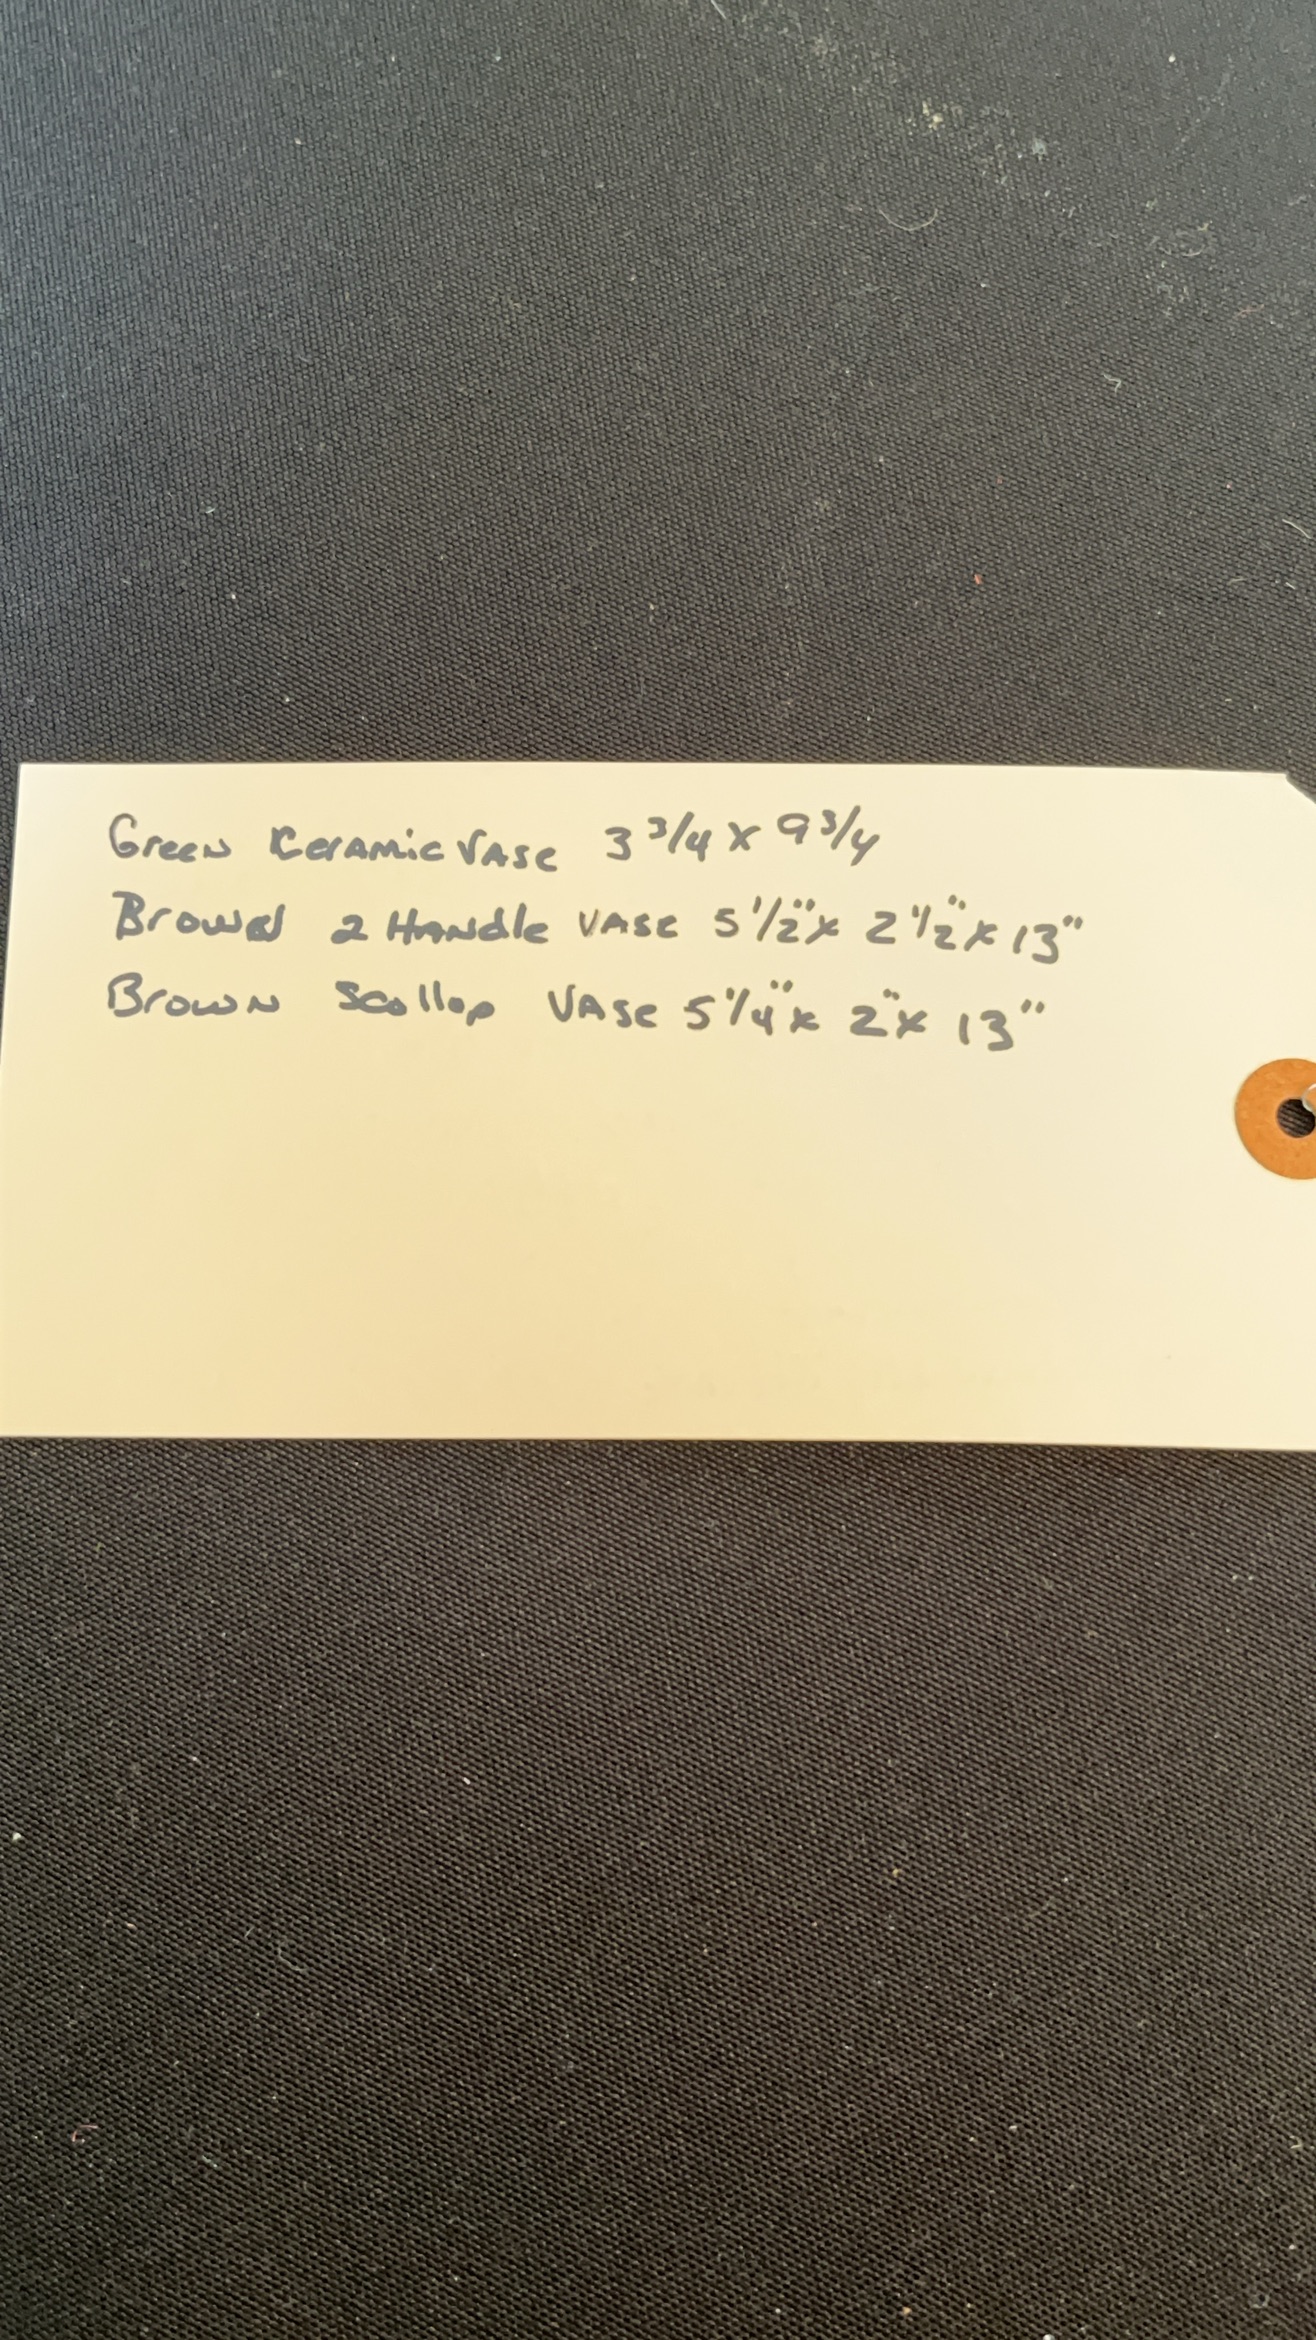 Green Ceramic Vase 3 3/4 x 9 3/4
Brown 2 Handle Vase 5 1/2" x 2 1/2" x 13"
Brown Scollop Vase 5 1/4" x 2" x 13"